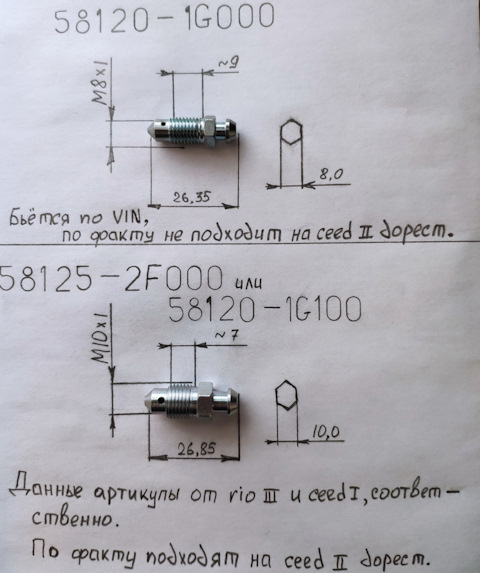 58120-1G000
~9
M8x1
8,0
26,35
Бьётся по VIN,
по факту не подходит на ceed II дорест.
58125-2F000 или
58120-1G100
~7
M10x1
10,0
26,85
Данные артикулы от rio III и ceed I, соответ-
ственно.
По факту подходят на ceed II дорест.